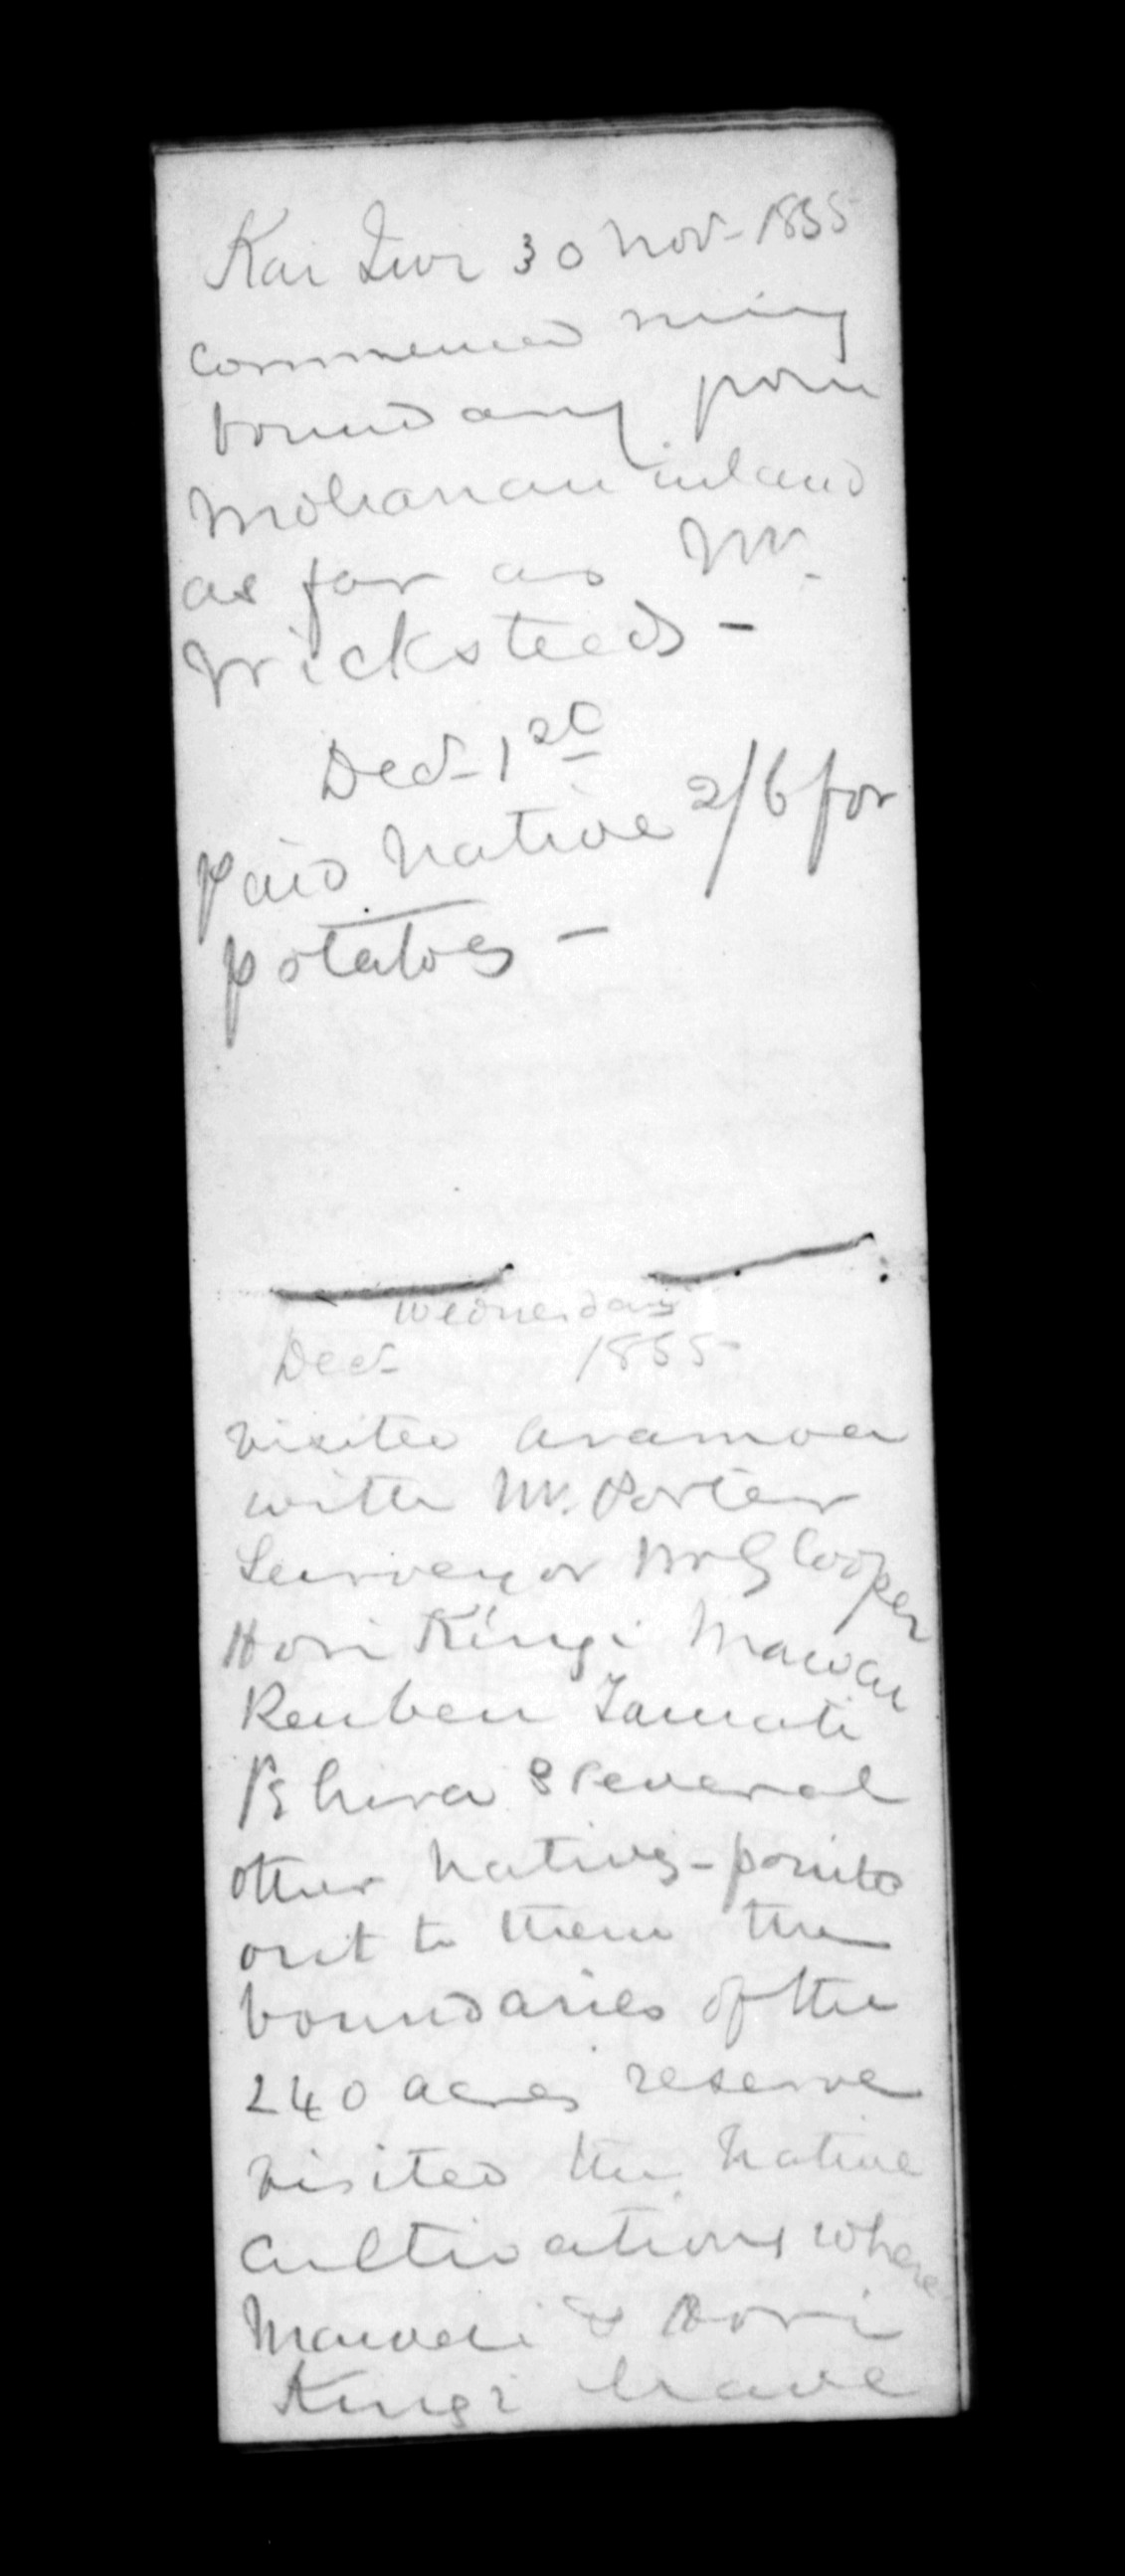 Kai Iwi 30 Nov- 1855
commenced
boundary from
Mohanau inland
as far as Mr.
Wicksteeds -
Decr 1st
paid native 2/6 for
potatoes -
Wednesday
Decr 1855
visited Aramoa
with Mr. Porter
Surveyor Mr G Cooper
Hori Kingi Mawai
Reuben Tamati
& several
other natives - pointed
out to them the
boundaries of the
240 acres reserve
visited the native
cultivations where
Mawai & Hori
Kingi have